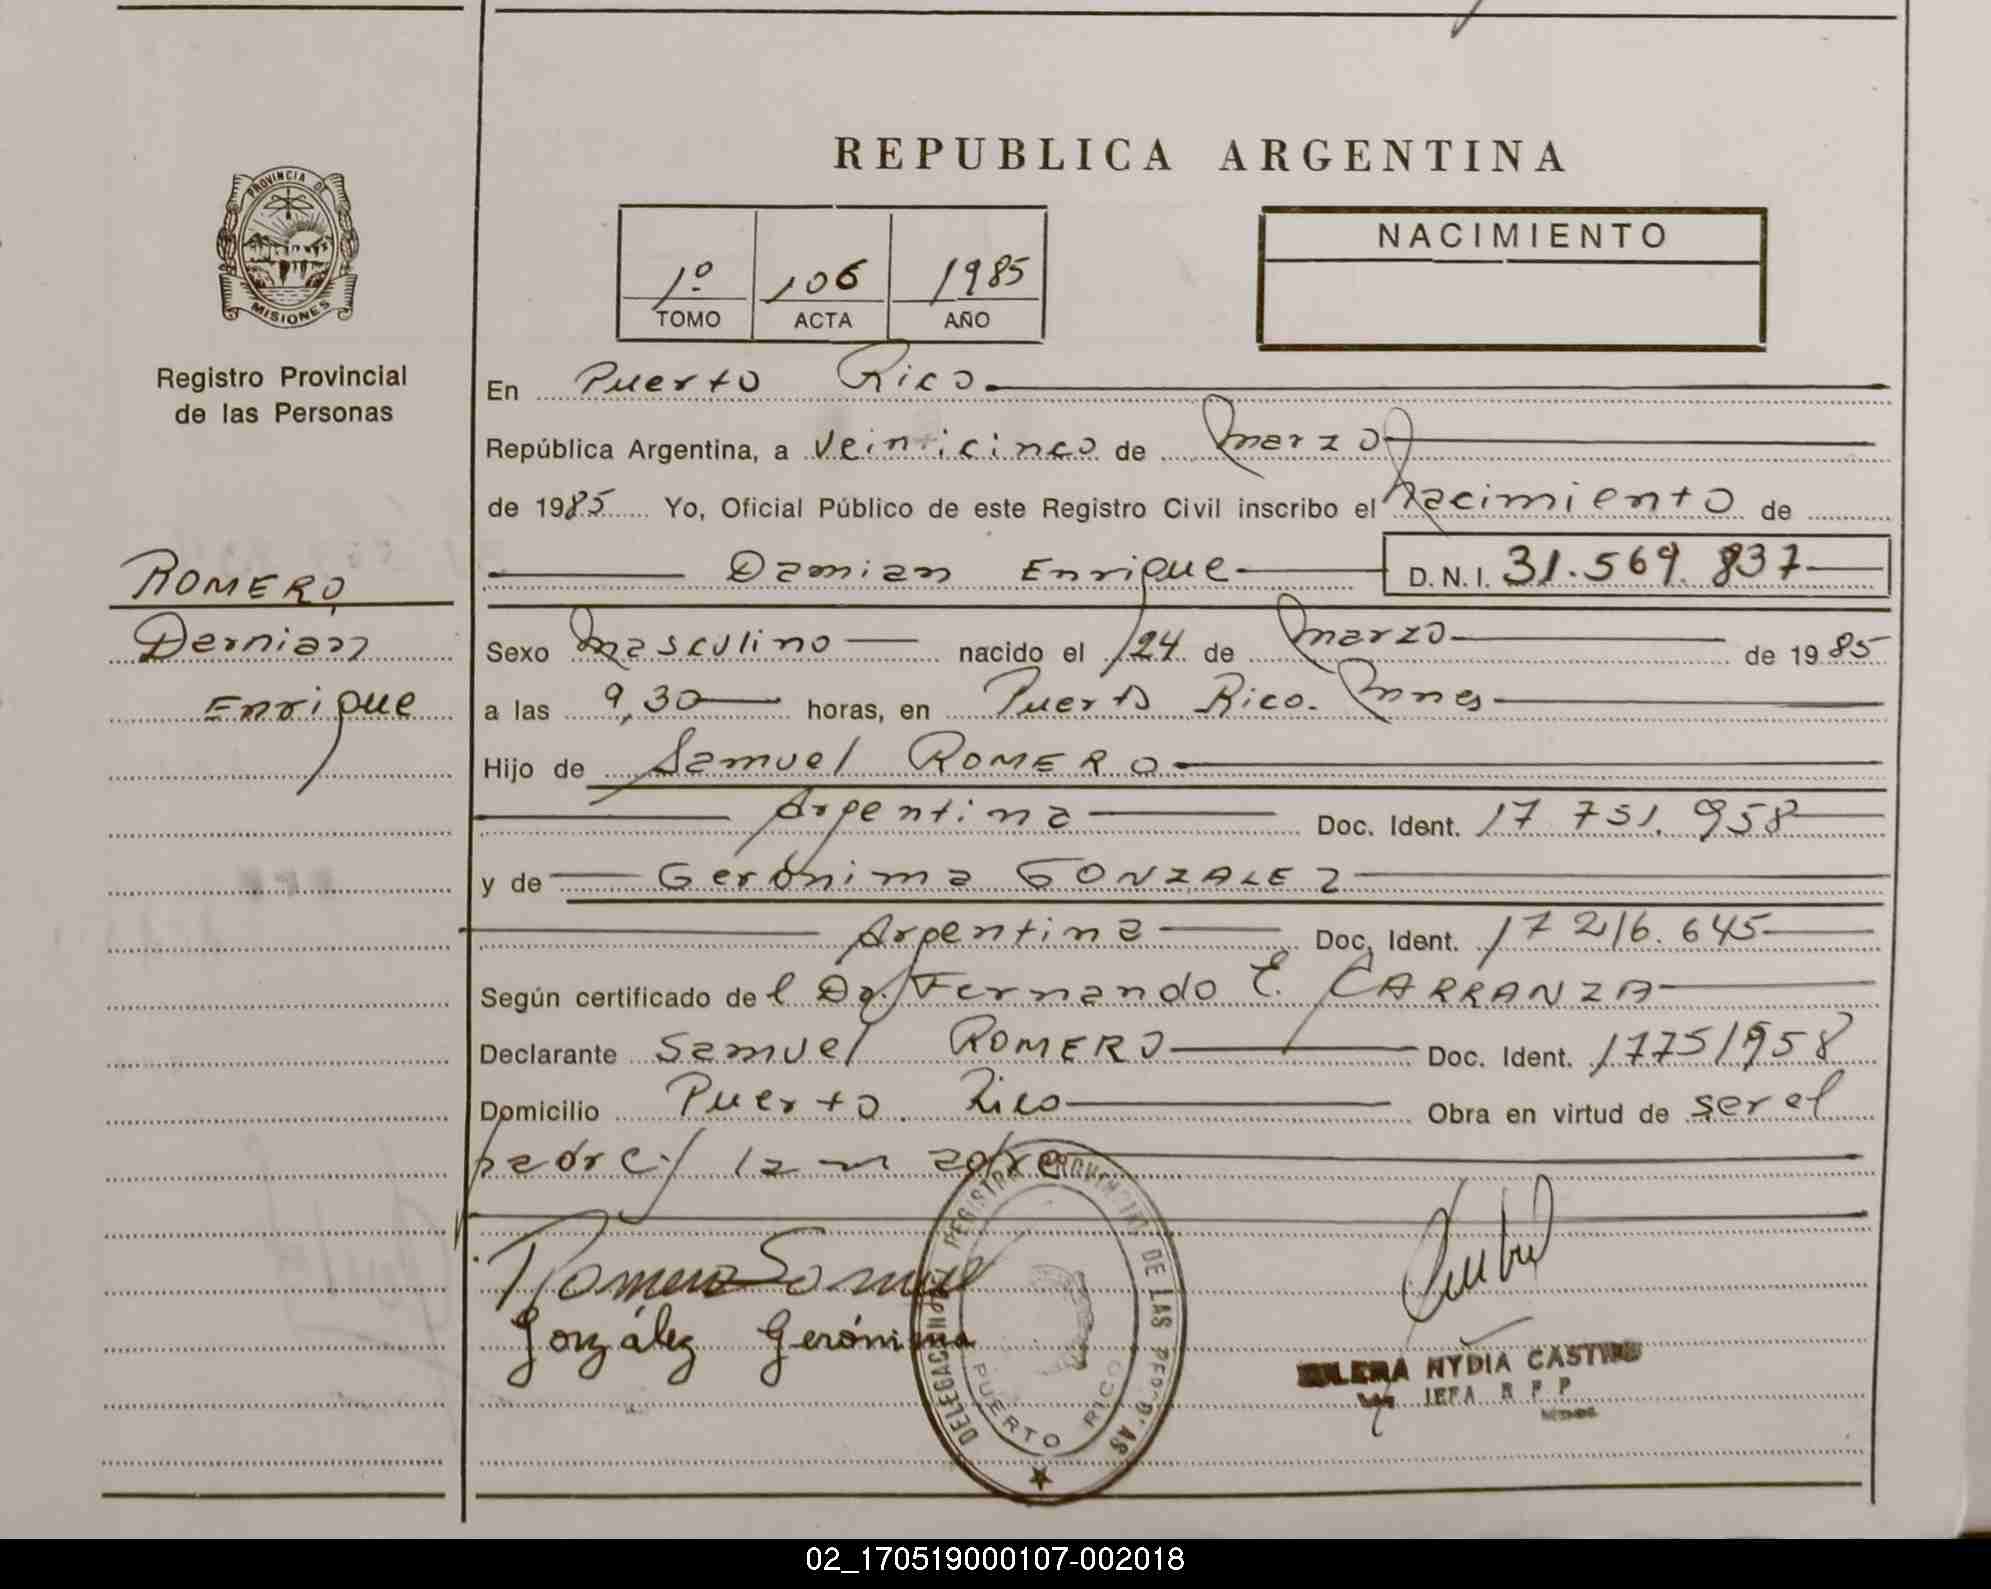 REPUBLICA ARGENTINA
PROVINCIA DE
MISIONES
Registro Provincial
de las Personas
1º 106 1985
TOMO ACTA AÑO
NACIMIENTO
En Puerto Rico
República Argentina, a veinticinco de marzo
de 1985 Yo, Oficial Público de este Registro Civil inscribo el nacimiento de
Damian Enrique D.N.I. 31.569.837
ROMERO,
Demian
Enrique
Sexo masculino nacido el 24 de marzo de 1985
a las 9,30 horas, en Puerto Rico. Mnes
Hijo de Samuel ROMERO
Argentina Doc. Ident. 17 751.958
y de Gerónima GONZALEZ
Argentina Doc. Ident. 17 216.645
Según certificado del Dr. Fernando E. CARRANZA
Declarante Samuel ROMERO Doc. Ident. 17751958
Domicilio Puerto Rico Obra en virtud de ser el
padre
Romero Samuel
González Gerónima
DELEGACION REGISTRO PROVINCIAL DE LAS PERSONAS
PUERTO RICO
NYDIA CASTRO
JEFA R P P
02_170519000107-002018